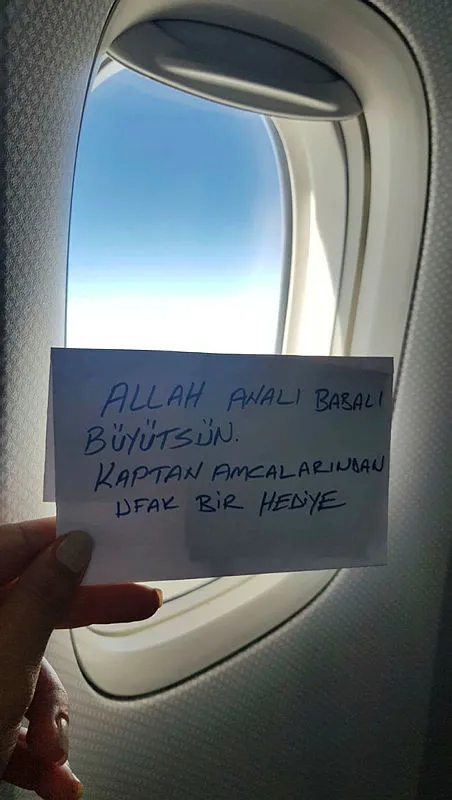 ALLAH ANALI BABALI
BÜYÜTSÜN.
KAPTAN AMCALARINDAN
UFAK BİR HEDİYE